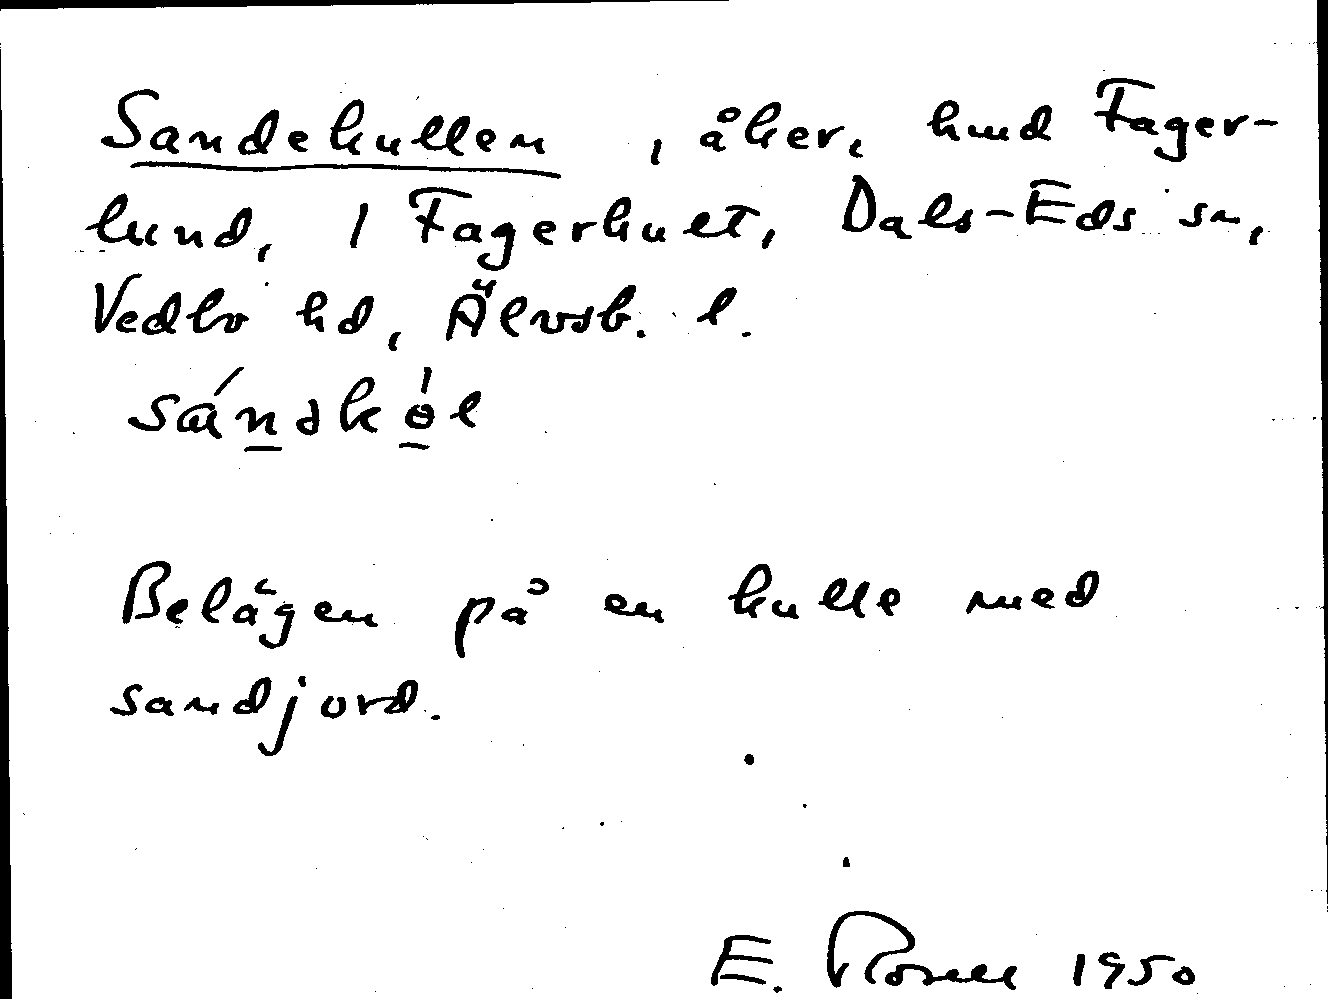 Sandekullen, åker, hmd Fager-
lund, 1 Fagerhult, Dals-Eds sn,
Vedbo hd, Älvsb. l.
Belägen på en kulle med
sandjord.
E. 1950